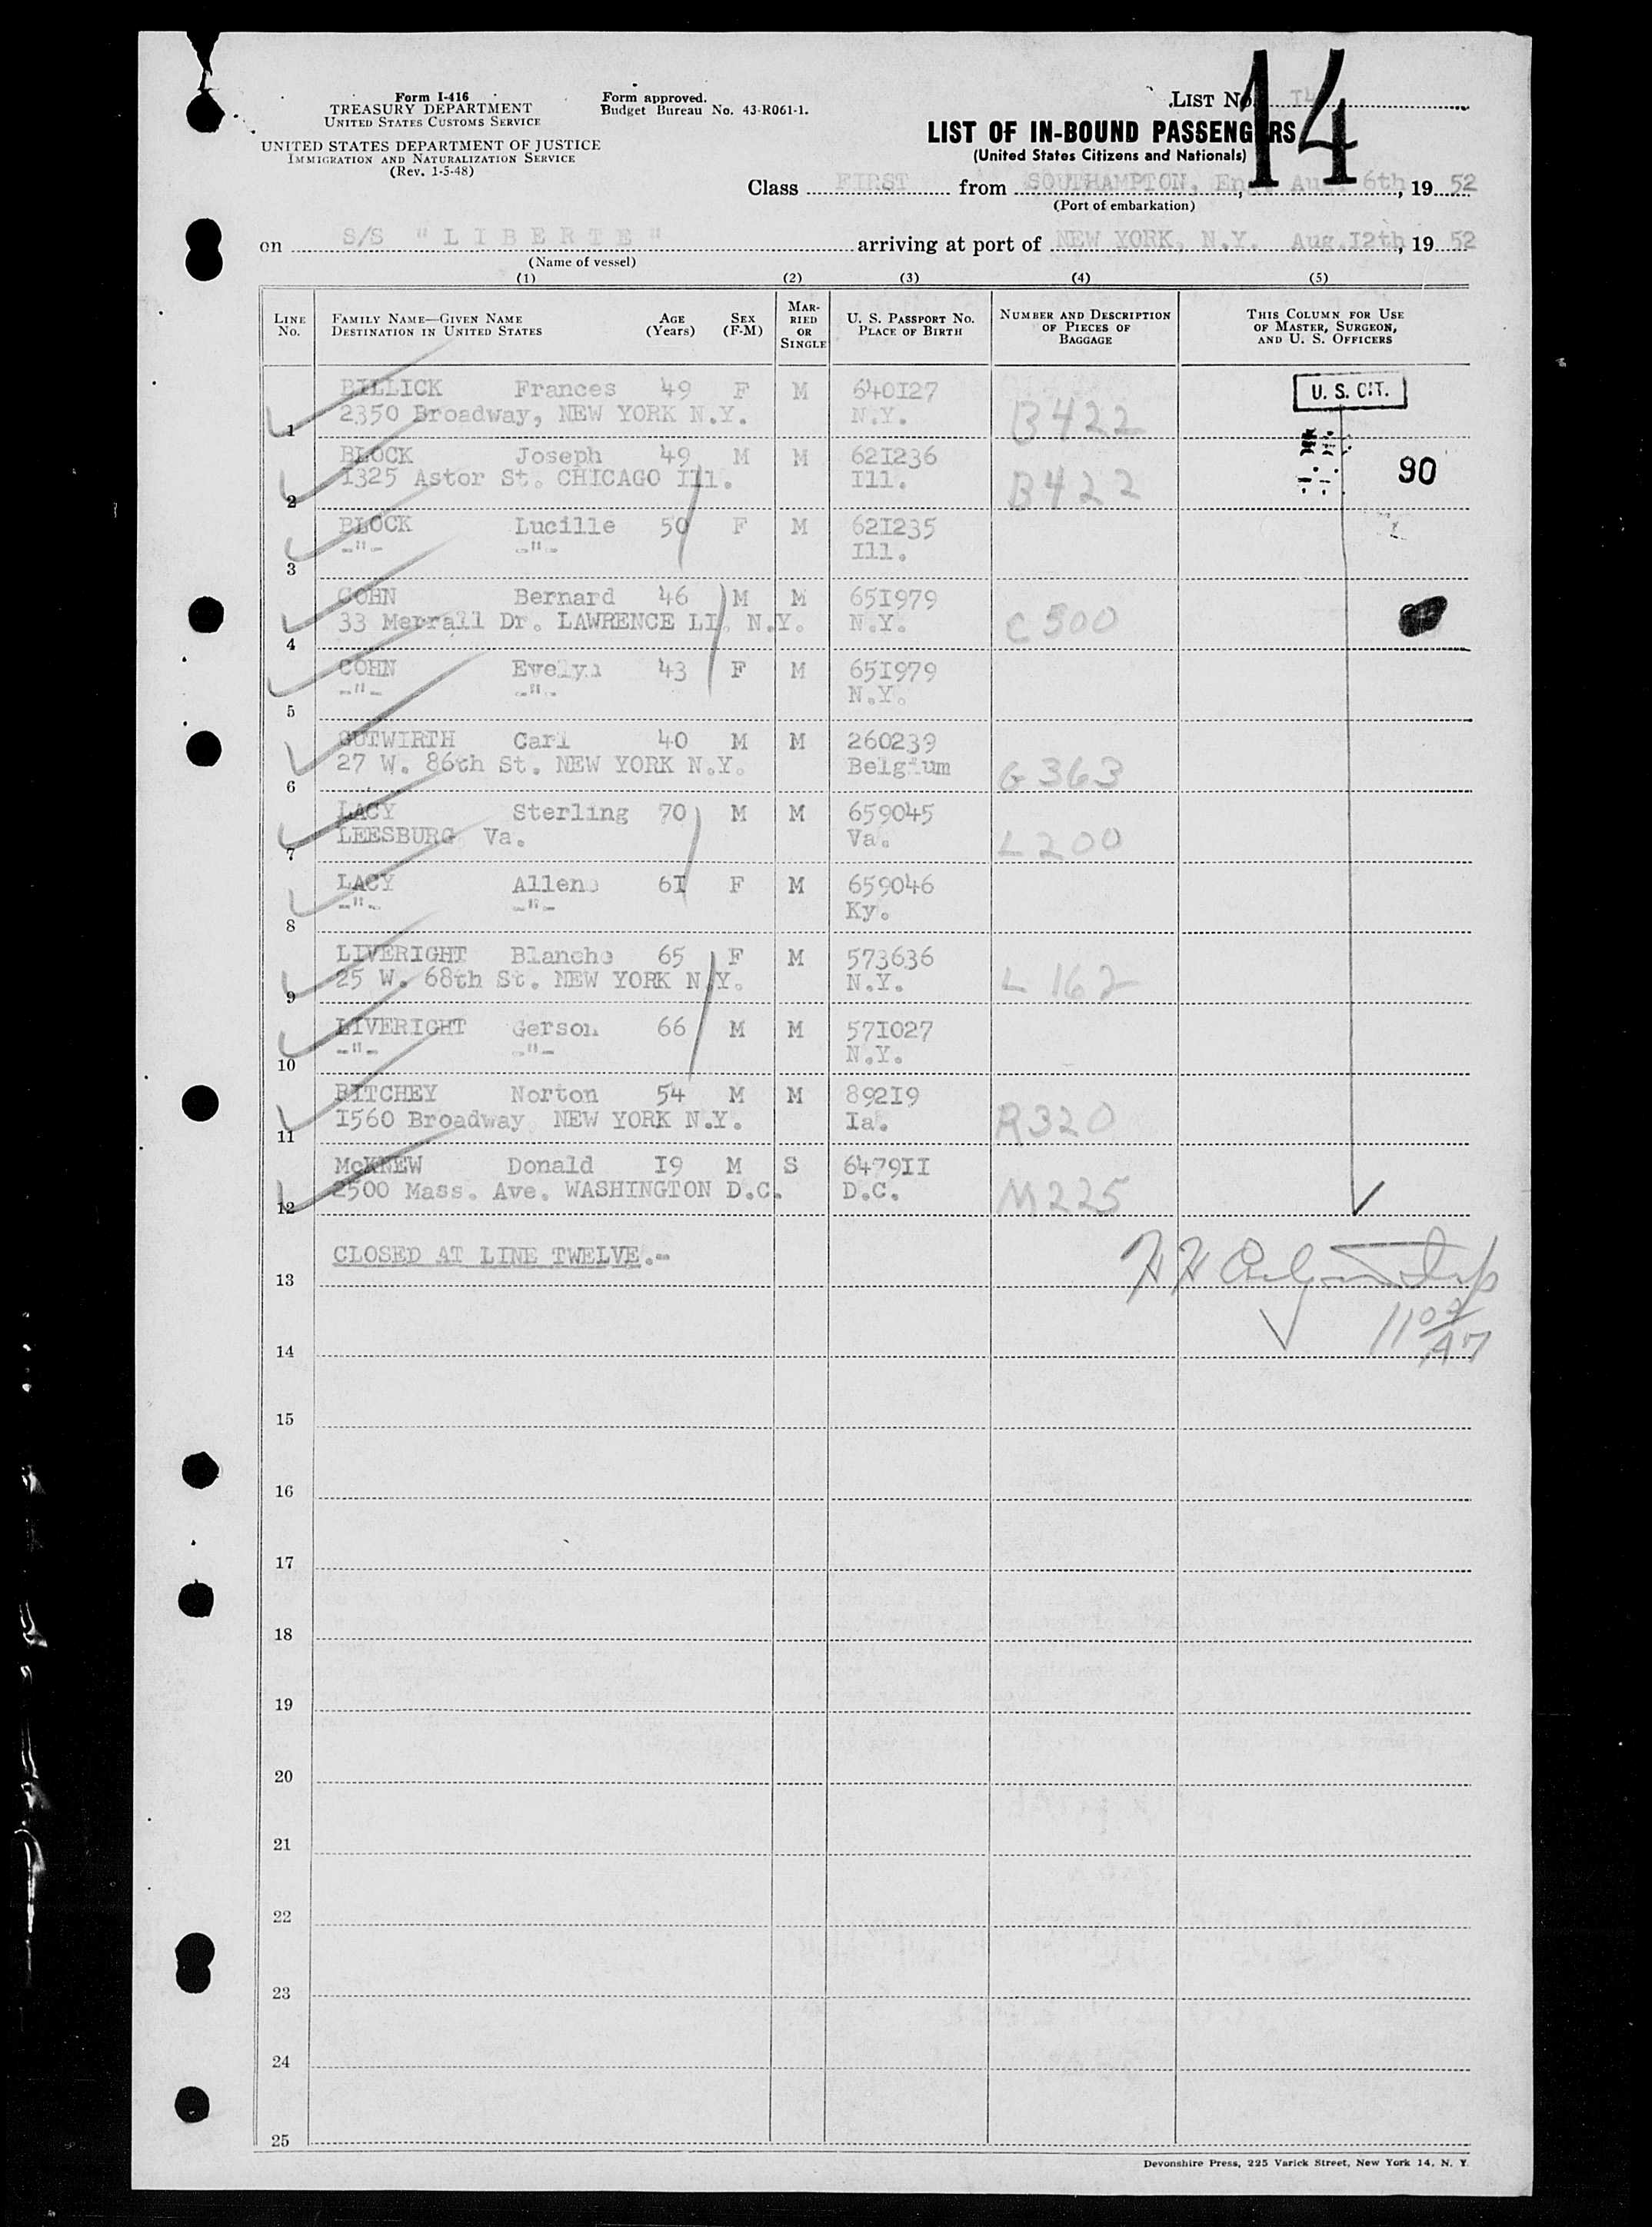 Form I-416
TREASURY DEPARTMENT
UNITED STATES CUSTOMS SERVICE
UNITED STATES DEPARTMENT OF JUSTICE
IMMIGRATION AND NATURALIZATION SERVICE
(Rev. 1-5-48)
Form approved.
Budget Bureau No. 43-R061-1.
LIST No. 14
14
LIST OF IN-BOUND PASSENGERS
(United States Citizens and Nationals)
Class FIRST from SOUTHAMPTON, En Au 6th, 19 52
(Port of embarkation)
on S/S "LIBERTE" arriving at port of NEW YORK, N.Y. Aug.I2th, 19 52
(Name of vessel)
(1) (2) (3) (4) (5)
LINE No. FAMILY NAME—GIVEN NAME DESTINATION IN UNITED STATES AGE (Years) SEX (F-M) MARRIED OR SINGLE U. S. PASSPORT No. PLACE OF BIRTH NUMBER AND DESCRIPTION OF PIECES OF BAGGAGE THIS COLUMN FOR USE OF MASTER, SURGEON, AND U. S. OFFICERS
BILLICK Frances 49 F M 640I27 U. S. CIT.
1 2350 Broadway, NEW YORK N.Y. N.Y. B422
BLOCK Joseph 49 M M 62I236 90
2 I325 Astor St. CHICAGO Ill. Ill. B422
BLOCK Lucille 50 F M 62I235
-"- -"- Ill.
3
COHN Bernard 46 M M 65I979
4 33 Merrall Dr. LAWRENCE LI N.Y. N.Y. C500
COHN Evelyn 43 F M 65I979
-"- -"- N.Y.
5
GUTWIRTH Carl 40 M M 260239
27 W. 86th St. NEW YORK N.Y. Belgium G363
6
LACY Sterling 70 M M 659045
7 LEESBURG Va. Va. L200
LACY Allene 6I F M 659046
-"- -"- Ky.
8
LIVERIGHT Blanche 65 F M 573636
9 25 W. 68th St. NEW YORK N.Y. N.Y. L162
LIVERIGHT Gerson 66 M M 57I027
-"- -"- N.Y.
10
RITCHEY Norton 54 M M 892I9
11 I560 Broadway NEW YORK N.Y. Ia. R320
McKNEW Donald I9 M S 6479II
12 2500 Mass. Ave. WASHINGTON D.C. D.C. M225
CLOSED AT LINE TWELVE.-
13
14
15
16
17
18
19
20
21
22
23
24
25
Devonshire Press, 225 Varick Street, New York 14, N. Y.